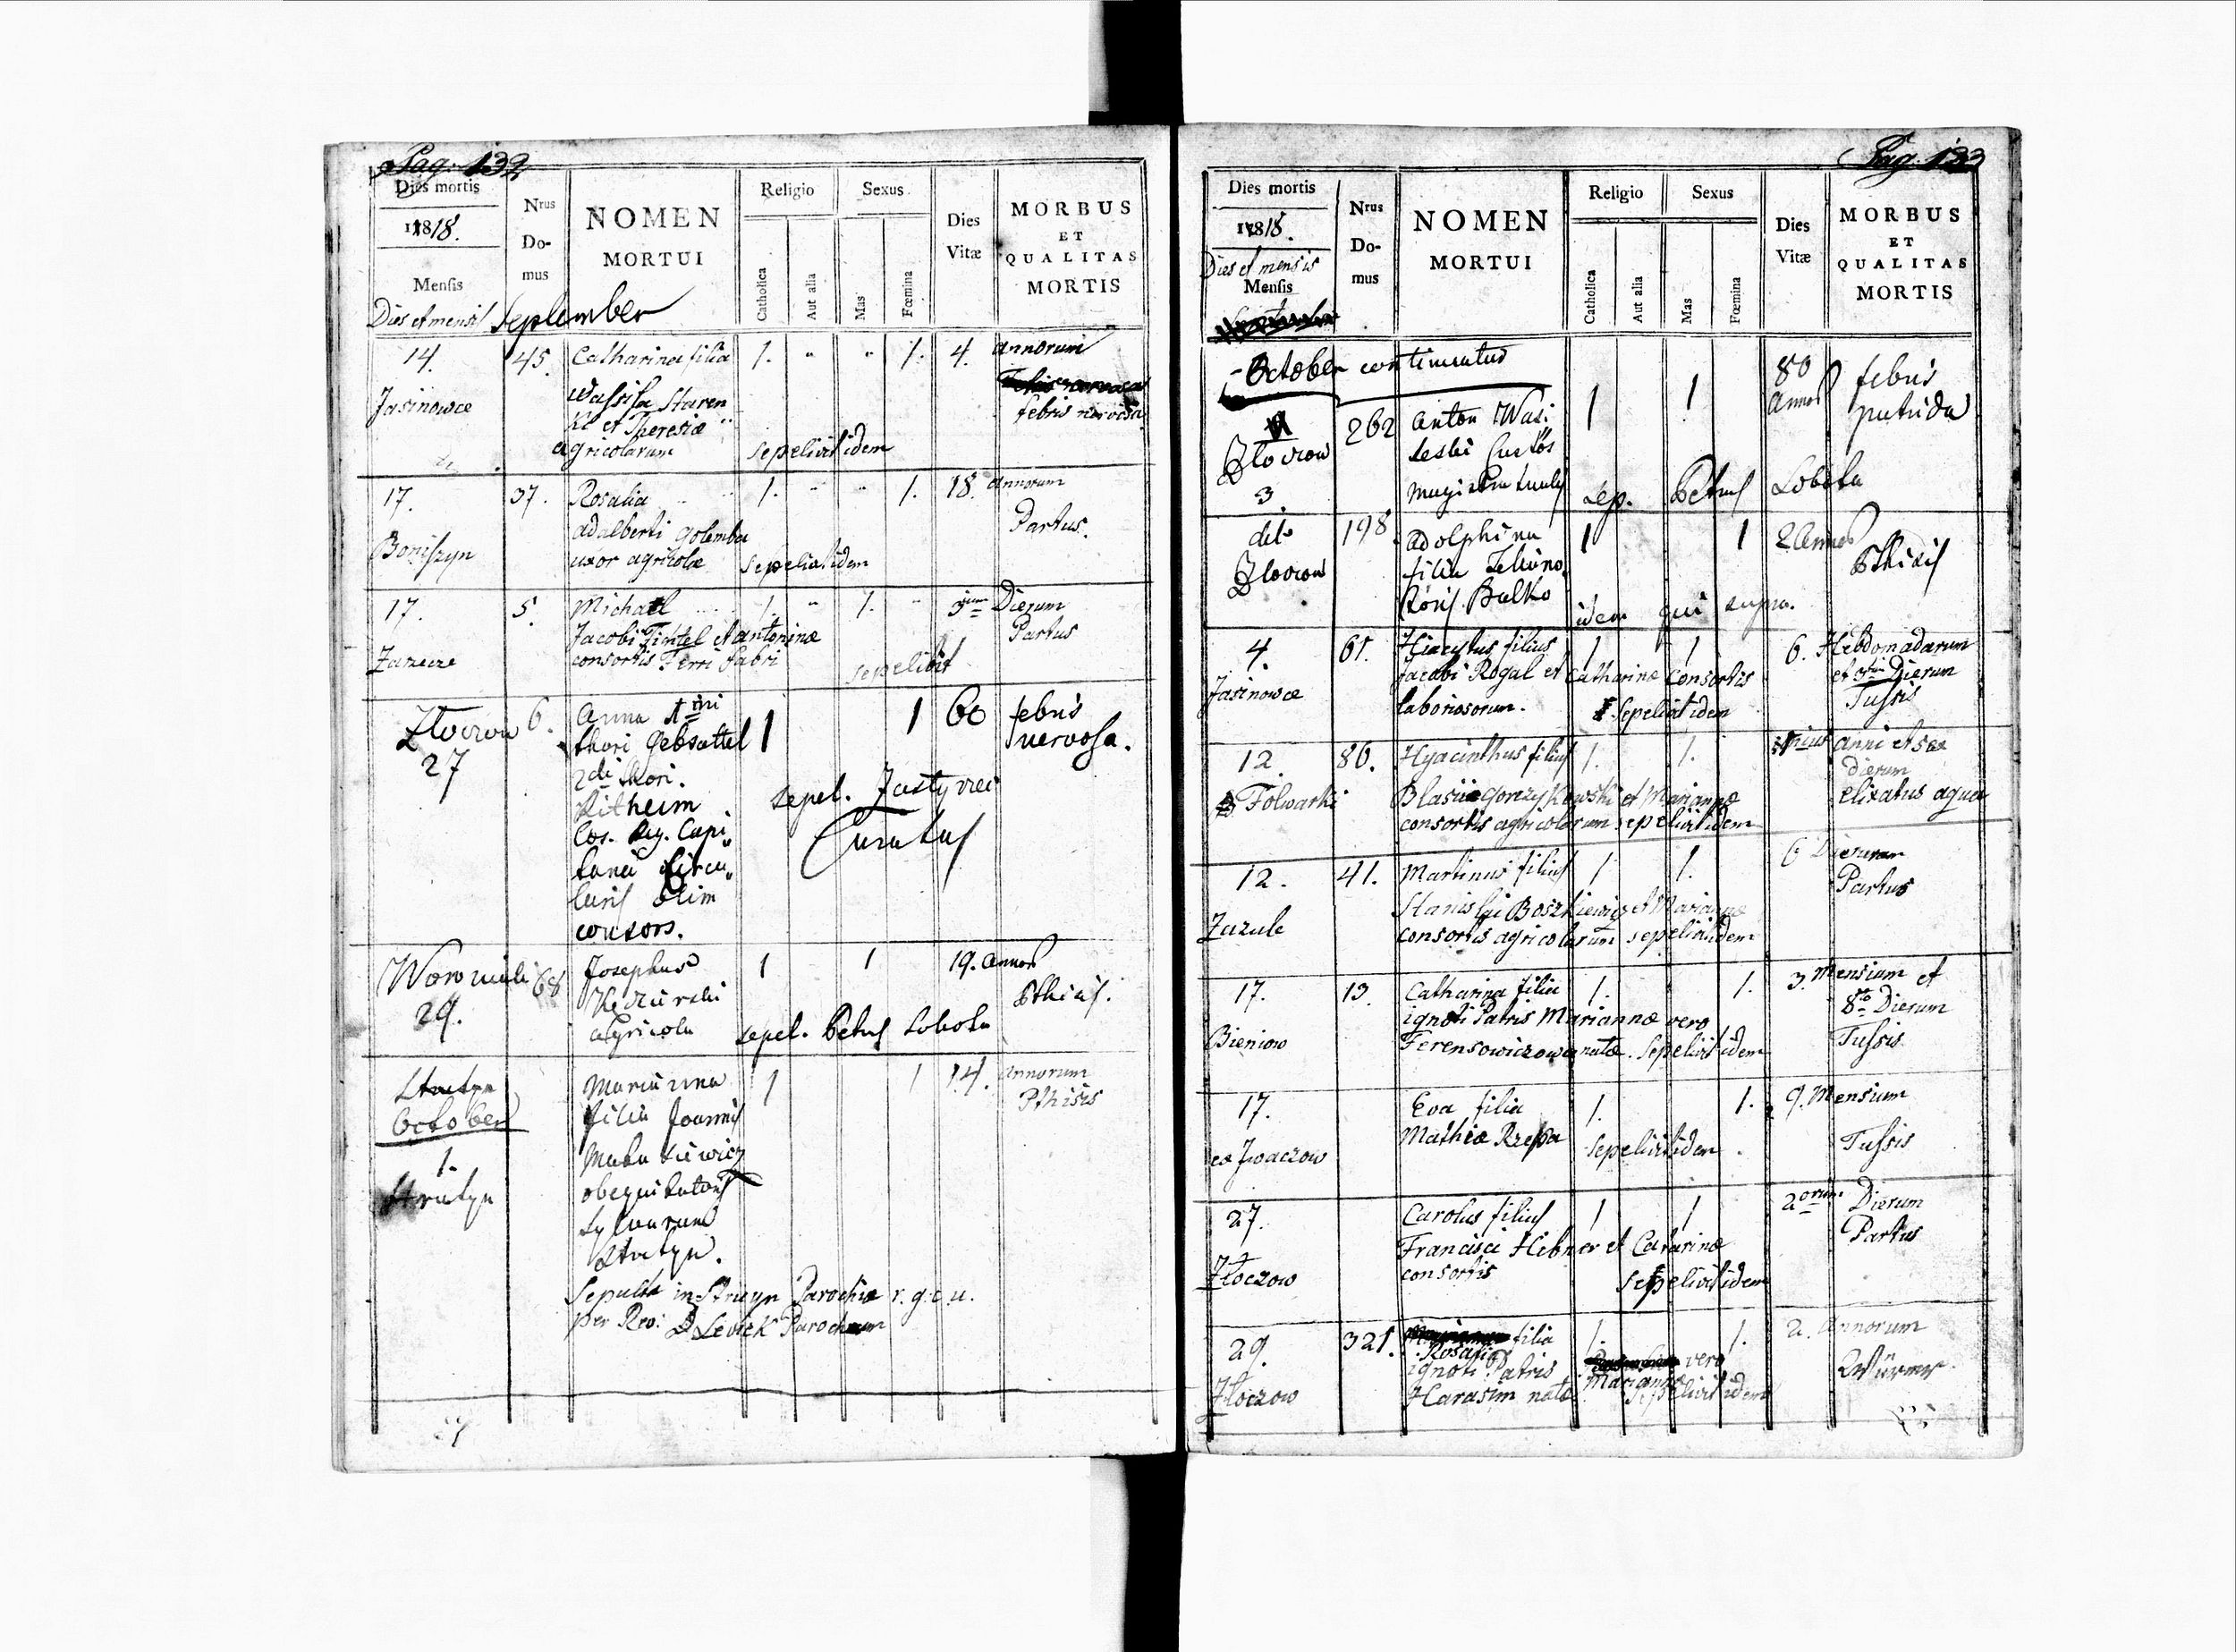 Pag. 132
Dies mortis
1818.
Mensis
Dies et mensis
Nrus Do-
mus
September
NOMEN
MORTUI
Religio
Catholica
Aut alia
Sexus
Mas
Fœmina
Dies
Vitæ
MORBUS
ET
QUALITAS
MORTIS
14. 45. Catharina filia 1. " " 1. 4. annorum
Jasinowce Wassila Staren
febris nervosa
Ki et Theresiæ
agricolarum sepelivit idem
17. 37. Rosalia 1. " " 1. 18. annorum
Adalberti Golemba Partus.
Boniszyn uxor agricolæ sepelivit idem
17. 5. Michael 1. " 1. " 3um Dierum
Jacobi Tintel et antoninæ Partus
consortis Ferri fabri sepelivit
Zloczow 6. Anna 1mi 1 1 60 febris
27 thori Gebsattel nervosa.
2di thori.
Ritheim sepel. Zastyrec
Cæs. Reg. Capi Curatus
tanei Circu
laris olim
consors.
Woroniaki 68 Josephus 1 1 19. annos
29. Pthisis.
agricola sepel. Petrus Sobota
Strutyn Marianna 1 1 14. annorum
October filia Joannis Pthisis
1.
Strutyn obequitatoris
sylvarum
Strutyn.
Sepulta in Strutyn Parochiæ r. g. c. u.
per Rev: D Levick Parochum
Pag. 133
Dies mortis
1818.
Dies et mensis
Mensis
Nrus
Do-
mus
NOMEN
MORTUI
Religio
Catholica
Aut alia
Sexus
Mas
Fœmina
Dies
Vitæ
MORBUS
ET
QUALITAS
MORTIS
October continuatus
Zloczow 262 Anton Wasi 1 1 80 annos febris putrida
leski Custos
3. Magistratualis Sep. Petrus Sobota
deto 198. Adolphina 1 1 2 Annos
Zloczow filia Pthisis
Balko idem qui supra.
4. 61. Hiacyntus filius 1 1 6. Hebdomadarum
Jacobi Rogal et Catharinæ consortis et Dierum
Jasinowce laboriosorum. Sepelivit idem Tussis
12. 86. Hyacinthus filius 1. 1. anni et
dierum
Folwarki Blasii Gorczykowski et Mariannæ elixatus aqua
consortis agricolarum sepelivit idem
12. 41. Martinus filius 1 1. 6 Dierum
Partus
Stanislai Boszkiewicz et Mariannæ
Zazule consortis agricolarum sepelivit idem
17. 13. Catharina filia 1. 1. 3. Mensium et
ignoti Patris Mariannæ vero 8to Dierum
Bieniow Ferensowiczowa natæ. Sepelivit idem Tussis
17. Eva filia 1. 1. 9. Mensium
Mathiæ Rzepa Tussis
ex Jwaczow Sepelivit idem
27. Carolus filius 1 1 2orum Dierum
Francisci Hibner et Catarinæ Partus
Zloczow consortis Sepelivit idem
29. 321. Rosalia filia 1. 1. 2. Annorum
ignoti Patris Marianna vero
Zloczow Harasim natæ Sepelivit idem